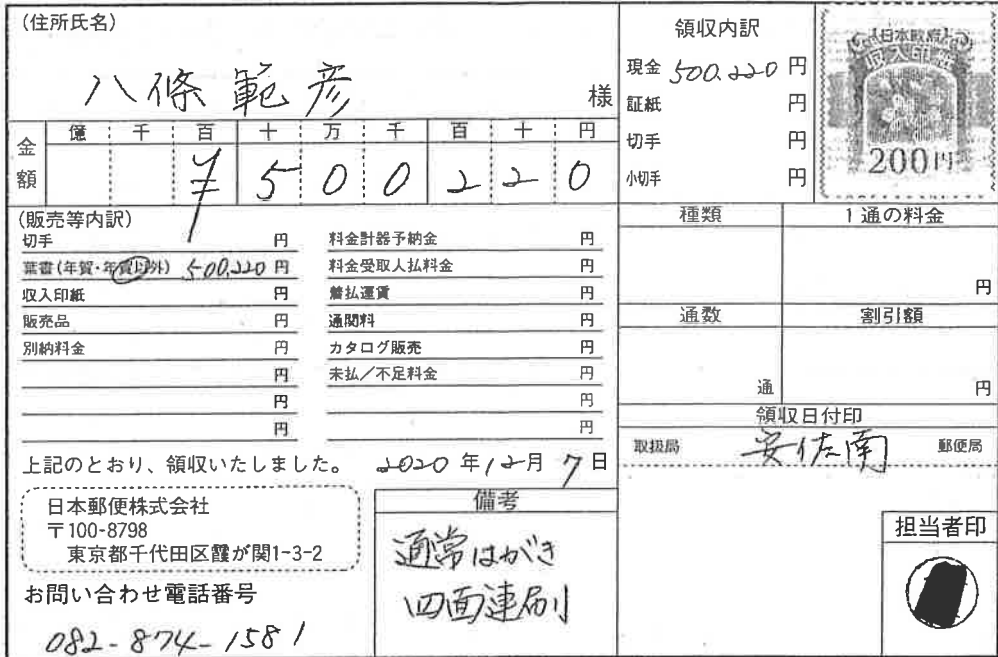 (住所氏名)
八條 範彦 様
金額 億 千 百 十 万 千 百 十 円
¥ 5 0 0 2 2 0
領収内訳
現金 500,220 円
証紙 円
切手 円
小切手 円
日本政府
収入印紙
200円
(販売等内訳)
切手 円
葉書(年賀・年賀以外) 500,220 円
収入印紙 円
販売品 円
別納料金 円
円
円
円
料金計器予納金 円
料金受取人払料金 円
着払運賃 円
通関料 円
カタログ販売 円
未払/不足料金 円
円
円
種類 1通の料金
円
通数 割引額
通 円
領収日付印
取扱局 安佐南 郵便局
上記のとおり、領収いたしました。 2020年12月7日
日本郵便株式会社
〒100-8798
東京都千代田区霞が関1-3-2
お問い合わせ電話番号
082-874-1581
備考
通常はがき
四面連刷
担当者印